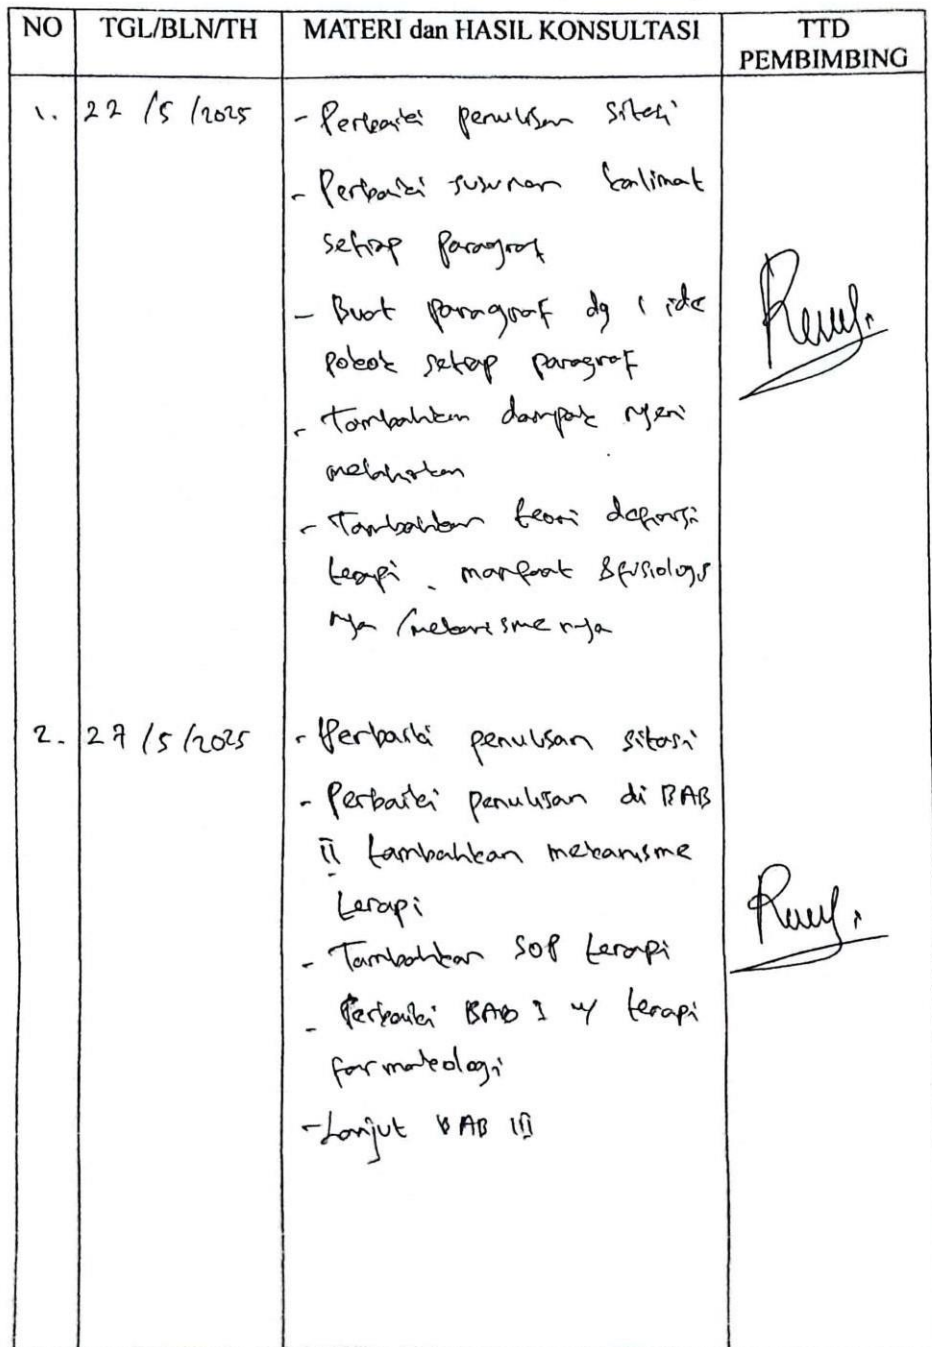 NO TGL/BLN/TH MATERI dan HASIL KONSULTASI TTD PEMBIMBING
1. 22 /5 /2025 - Perbaiki penulisan sitasi
- Perbaiki susunan kalimat
setiap paragraf
- Buat paragraf dg 1 ide
pokok setiap paragraf
- Tambahkan dampak nyeri
melahirkan
- Tambahkan teori definisi
terapi, manfaat & fisiologis
nya /mekanisme nya
2. 27 /5 /2025 - Perbaiki penulisan sitasi
- Perbaiki penulisan di BAB
II tambahkan mekanisme
terapi
- Tambahkan SOP terapi
- Perbaiki BAB I u/ terapi
farmakologi
- Lanjut BAB III